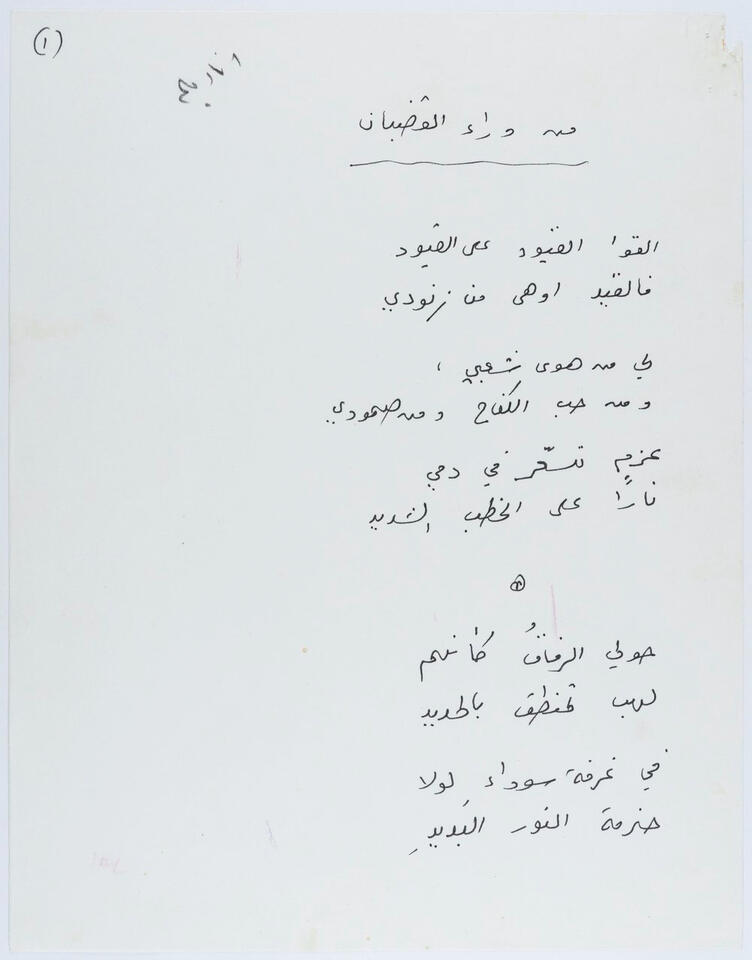 (١)
من وراء القضبان
القوا القيود على القيود
فالقيد اوهى من زنودي
لي من هوى شعبي ،
ومن حب الكفاح ومن صمودي
عزمٍ تسعّر في دمي
نارًا على الخطب الشديد
حولي الرفاقُ كأنهم
لهب تمنطق بالحديد
في غرفة سوداء لولا
حزمة النور البديدِ